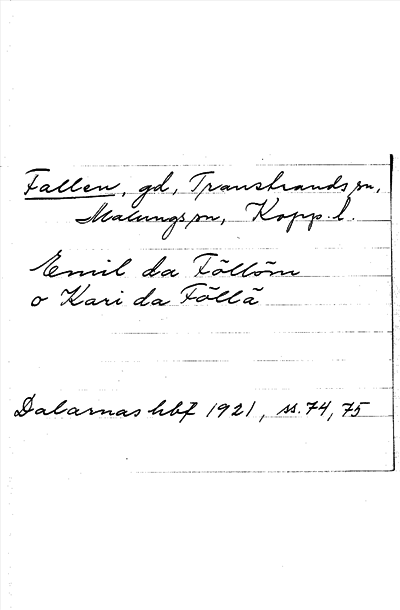 Fallen, gd, Transtrands sn,
Malungs sn, Kopp. l.
Emil da Föllöm
o Kari da Föllä
Dalarnas hbf 1921, ss. 74, 75